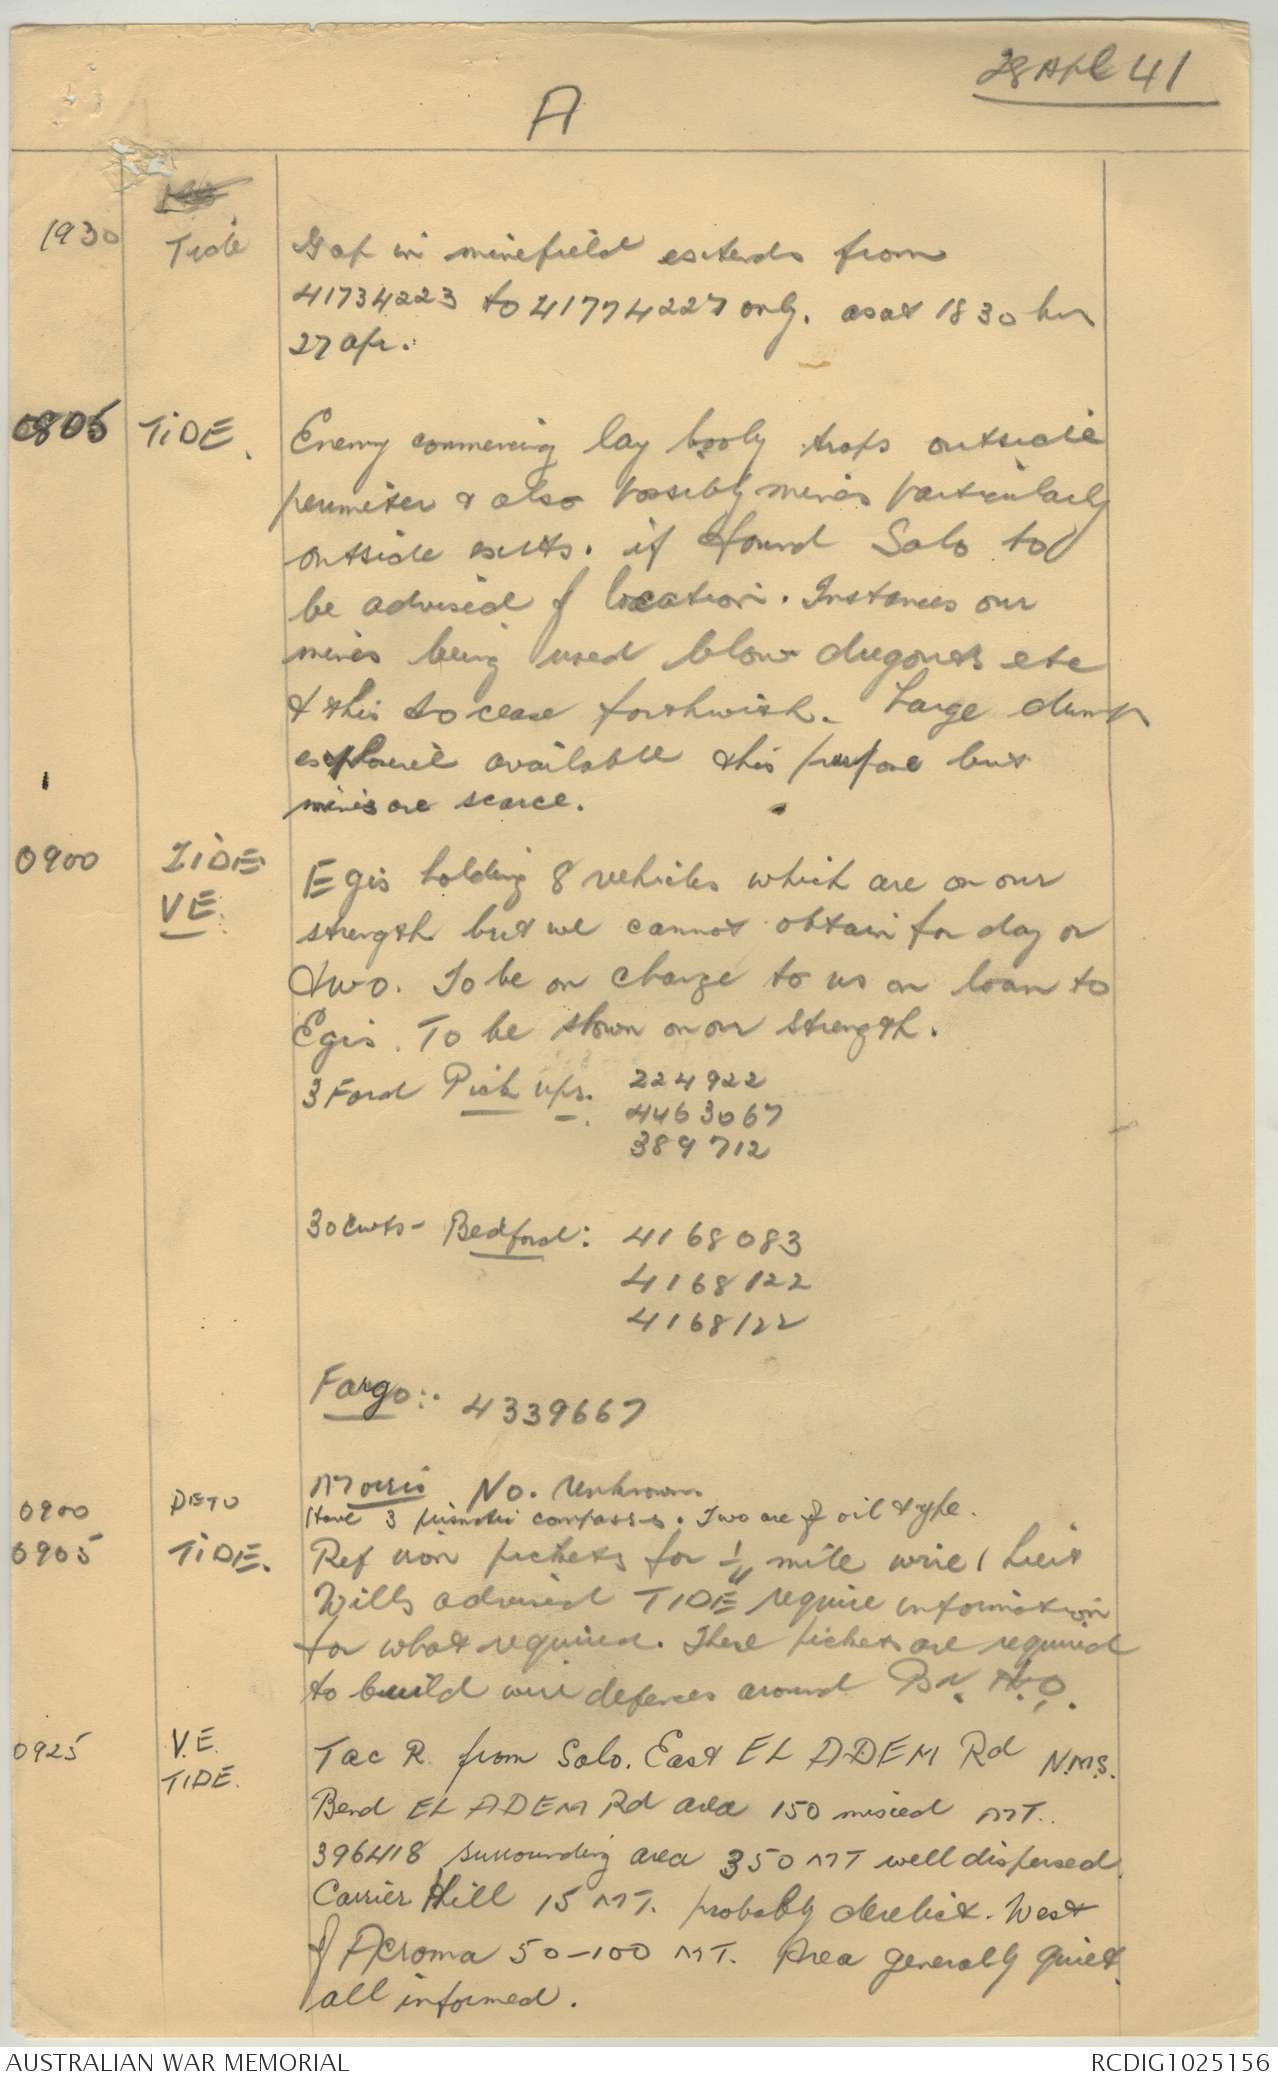 28 Apl 41
A
1930 Tide Gap in minefield extends from
41734223 to 41774227 only. as at 1830 hrs
27 Apr.
0805 TIDE. Enemy commencing lay booby traps outside
perimeter & also possibly mines particularly
outside exits. if found Solo to
be advised of location. Instances our
mines being used blow dugouts etc
& this to cease forthwith. Large dump
explosive available this purpose but
mines are scarce.
0900 TIDE Egis holding 8 vehicles which are on our
VE. strength but we cannot obtain for day or
two. To be on charge to us on loan to
Egis. To be shown on our strength.
3 Ford Pick ups. 224922
4463067
389712
30 cwts - Bedford: 4168083
4168122
4168122
Fargo: 4339667
Morris No. unknown
0900 DETO Have 3 prismatic compasses. Two are of oil type.
0905 TIDE. Ref iron pickets for ½ mile wire, Lieut
Wills advised TIDE require information
for what required. These pickets are required
to build wire defences around Bn. H.Q.
0925 V.E. Tac R. from Solo. East EL ADEM Rd N.M.S.
TIDE. Bend EL ADEM Rd area 150 mixed MT.
396418 surrounding area 350 MT well dispersed
Carrier Hill 15 MT. probably derelict. West
of Acroma 50-100 MT. Area generally quiet.
all informed.
AUSTRALIAN WAR MEMORIAL RCDIG1025156